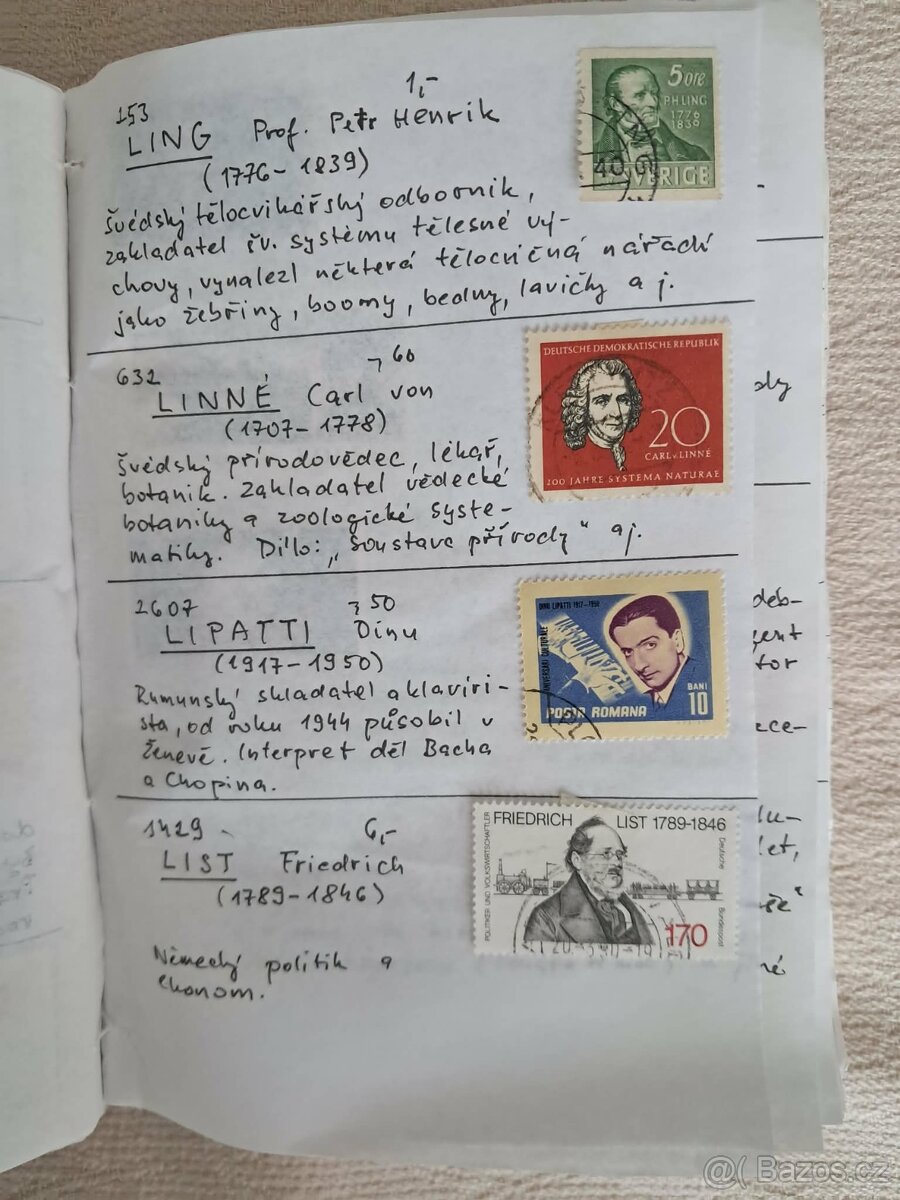 153
1,-
LING Prof. Petr Henrik
(1776-1839)
švédský tělocvikářský odborník,
zakladatel šv. systému tělesné vý-
chovy, vynalezl některá tělocvičná nářadí
jako žebřiny, boomy, bedny, lavičky a j.
5 öre
P.H LING
1776
1839
SVERIGE
40
632
,60
LINNÉ Carl von
(1707-1778)
švédský přírodovědec, lékař,
botanik. Zakladatel vědecké
botaniky a zoologické syste-
matiky. Dílo: „Soustava přírody" aj.
DEUTSCHE DEMOKRATISCHE REPUBLIK
20
CARL v. LINNÉ
200 JAHRE SYSTEMA NATURAE
2607
,50
LIPATTI Dinu
(1917-1950)
Rumunský skladatel a klavíri-
sta, od roku 1944 působil v
Ženevě. Interpret děl Bacha
a Chopina.
DINU LIPATTI 1917-1950
ANIVERSARI CULTURALE
BANI
10
POSTA ROMANA
1429
6,-
LIST Friedrich
(1789-1846)
Německý politik a
ekonom.
FRIEDRICH LIST 1789-1846
POLITIKER UND VOLKSWIRTSCHAFTLER
Deutsche
Bundespost
170
@( Bazos.cz